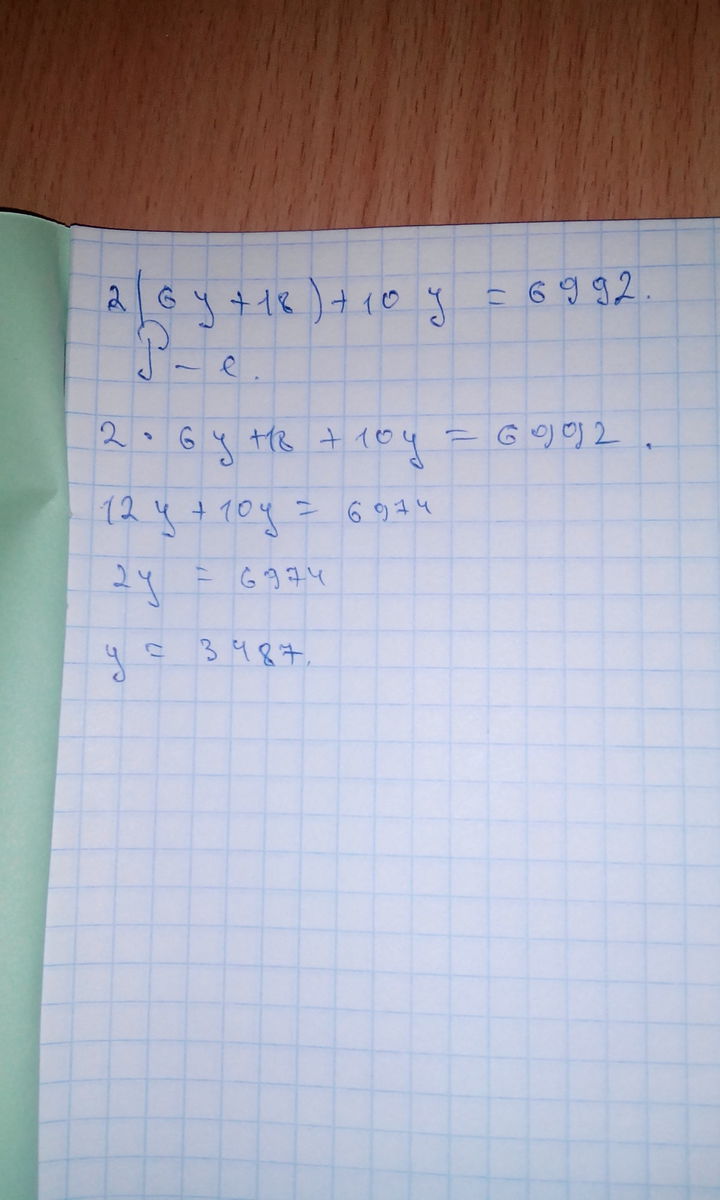 2(6y+18)+10y = 6992.
Р-е.
2 · 6y+18 + 10y = 6992.
12y + 10y = 6974
2y = 6974
y = 3487.